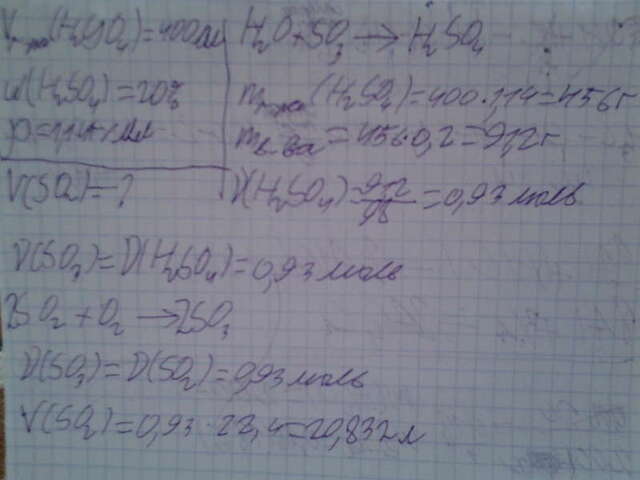 Vр-ра(H2SO4)=400мл
ω(H2SO4)=20%
ρ=1,14г/мл
V(SO2)=?
H2O+SO3→H2SO4
mр-ра(H2SO4)=400·1,14=456г
mв-ва=456·0,2=91,2г
ν(H2SO4)=91,2/98=0,93моль
ν(SO3)=ν(H2SO4)=0,93моль
2SO2+O2→2SO3
ν(SO3)=ν(SO2)=0,93моль
V(SO2)=0,93·22,4=20,832л